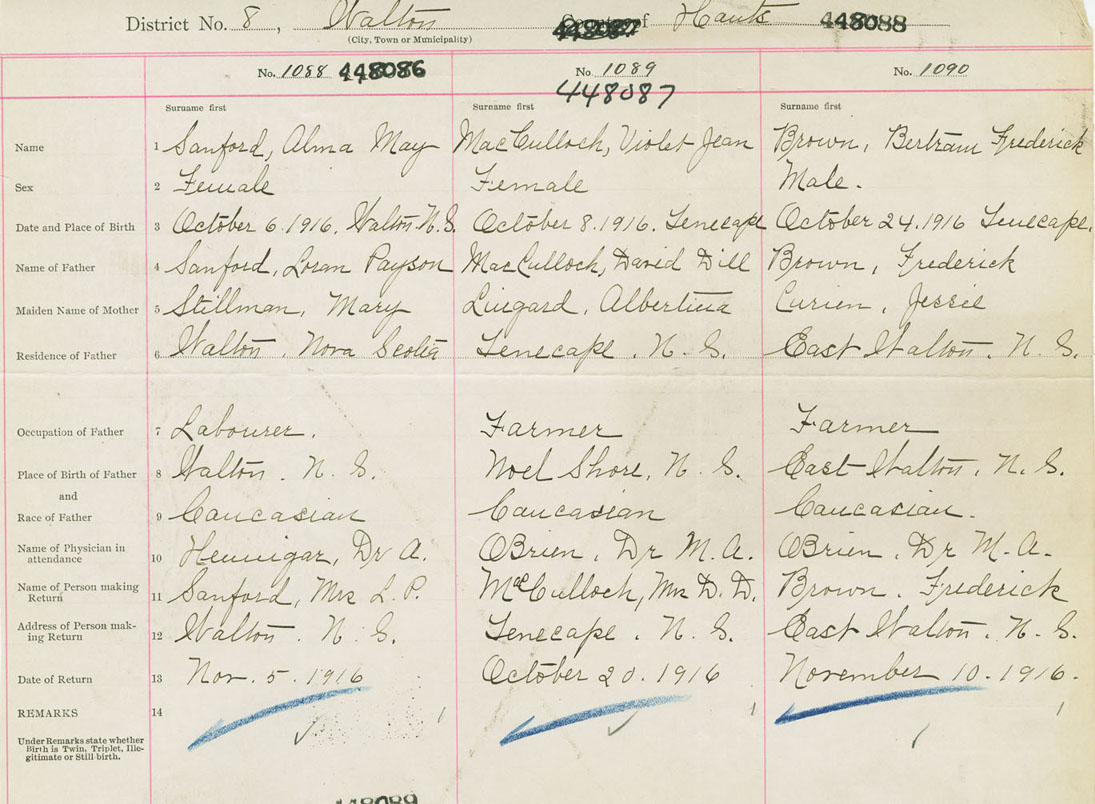 District No. 8, Walton County of Hants 448088
(City, Town or Municipality)
No. 1088 448086 No. 1089 No. 1090
448087
Surname first Surname first Surname first
Name 1 Sanford, Alma May MacCulloch, Violet Jean Brown, Bertram Frederick
Sex 2 Female Female Male.
Date and Place of Birth 3 October 6.1916. Walton N.S. October 8.1916. Tenecape October 24.1916 Tenecape.
Name of Father 4 Sanford, Loran Payson MacCulloch, David Dill Brown, Frederick
Maiden Name of Mother 5 Stillman, Mary Lingard, Albertina Curien, Jessie
Residence of Father 6 Walton. Nova Scotia Tenecape. N. S. East Walton. N. S.
Occupation of Father 7 Labourer. Farmer Farmer
Place of Birth of Father 8 Walton. N. S. Noel Shore, N. S. East Walton. N. S.
and
Race of Father 9 Caucasian Caucasian Caucasian.
Name of Physician in attendance 10 Hennigar, Dr A. OBrien, Dr M. A. OBrien, Dr M. A.
Name of Person making Return 11 Sanford, Mrs L. P. MacCulloch, Mrs D. D. Brown. Frederick
Address of Person mak-ing Return 12 Walton. N. S. Tenecape. N. S. East Walton. N. S.
Date of Return 13 Nov. 5. 1916 October 20. 1916 November 10. 1916.
REMARKS 14
Under Remarks state whether
Birth is Twin, Triplet, Ille-
gitimate or Still-birth.